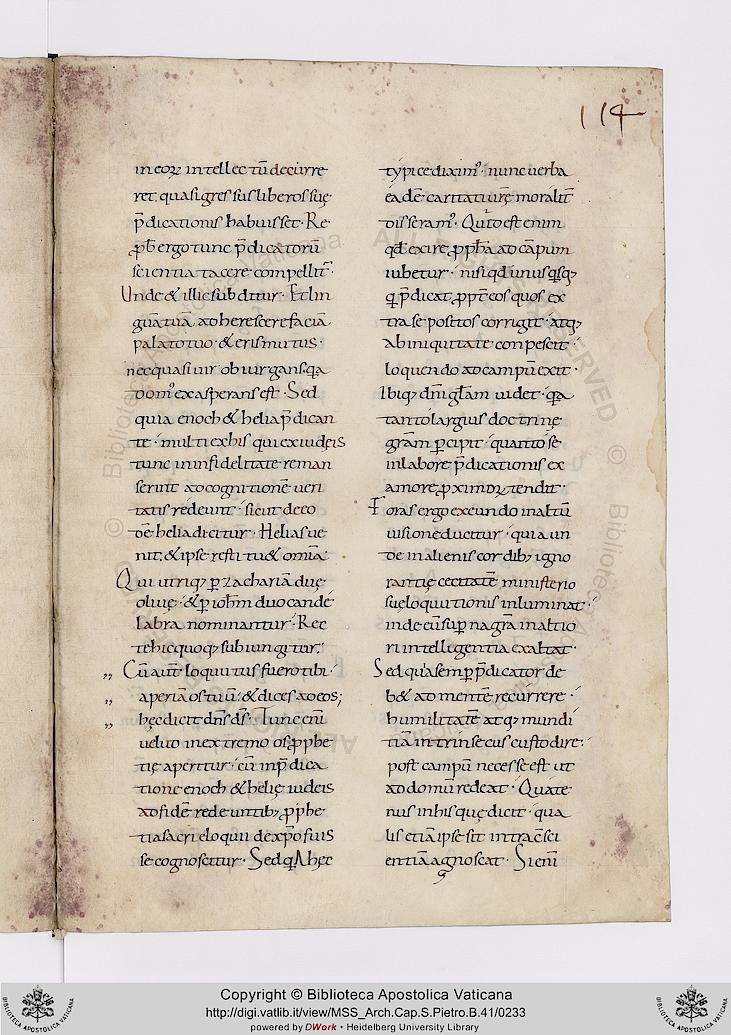 114
in eoꝝ intellectū decurre
ret. quasi gressus liberos suę
p̄dicationis habuisset · Re
ꝓb̄ ergo tunc p̄dicatorū
scientia tacere compellit̄ ·
Unde & illic subditur · Et lin
guā tuā adherescere faciā
palato tuo · & eris mutus ·
nec quasi uir obiurgans. q̄a
domꝰ exasperans est · Sed
quia enoch & helia p̄dican
te · multi ex his qui ex iudęis
tunc in infidelitate reman
serint ad cognitionē ueri
tatis redeunt · sicut de eo
dē helia dicitur · Helias ue
nit. & ipse restitu& omīa ·
Qui utriq; ꝑ zachariā duę
oliuę · & ꝑ ioh̄m duo cande
labra nominantur · Rec
te hic quoq; subiungitur ·
,, Cū aut̄ loquutus fuero tibi ·
,, aperiā os tuū · & dices ad eos;
,, hęc dicit dn̄s ds̄ · Tunc enī
uelut in extremo os ꝓphe
tię aperitur · cū in p̄dica
tione enoch & helię iudeis
ad fidē redeuntib; ꝓphe
tia sacri eloquii de xp̄o fuis
se cognoscitur · Sed q̄a hęc
typice diximꝰ · nunc uerba
eadē caritati ur̄ę moralit̄
disseramꝰ · Quid est enim
qd̄ exire ꝓph̄a ad cāpum
iubetur · nisi qd̄ unusq̄sq;
q̄ p̄dicat ꝓpt̄ eos quos ex
tra se positos corrigit · atq;
ab iniquitate conpescit ·
loquendo ad campū exit ·
Ibiq; dn̄i gl̄am uidet · q̄a
tanto largius doctrinę
grām ꝑcipit · quanto se
in labore p̄dicationis ex
amore ꝓximoꝝ tendit ·
Foras ergo exeundo in altū
uisione ducitur · quia un
de in alienis cordib; igno
rantię cecitatē ministerio
suę loquutionis inluminat ·
inde eū sup̄na gr̄a in altio
ri intellegentia exaltat ·
Sed quia semꝑ p̄dicator de
b& ad mentē recurrere ·
humilitatē atq; mundi
tiā intrinsecus custodire ·
post campū necesse est ut
ad domū redeat · Quate
nus in his quę dicit · qua
lis etiā ipse sit intra c̄sci
entiā agnoscat · Si enī
Copyright © Biblioteca Apostolica Vaticana
http://digi.vatlib.it/view/MSS_Arch.Cap.S.Pietro.B.41/0233
powered by DWork • Heidelberg University Library